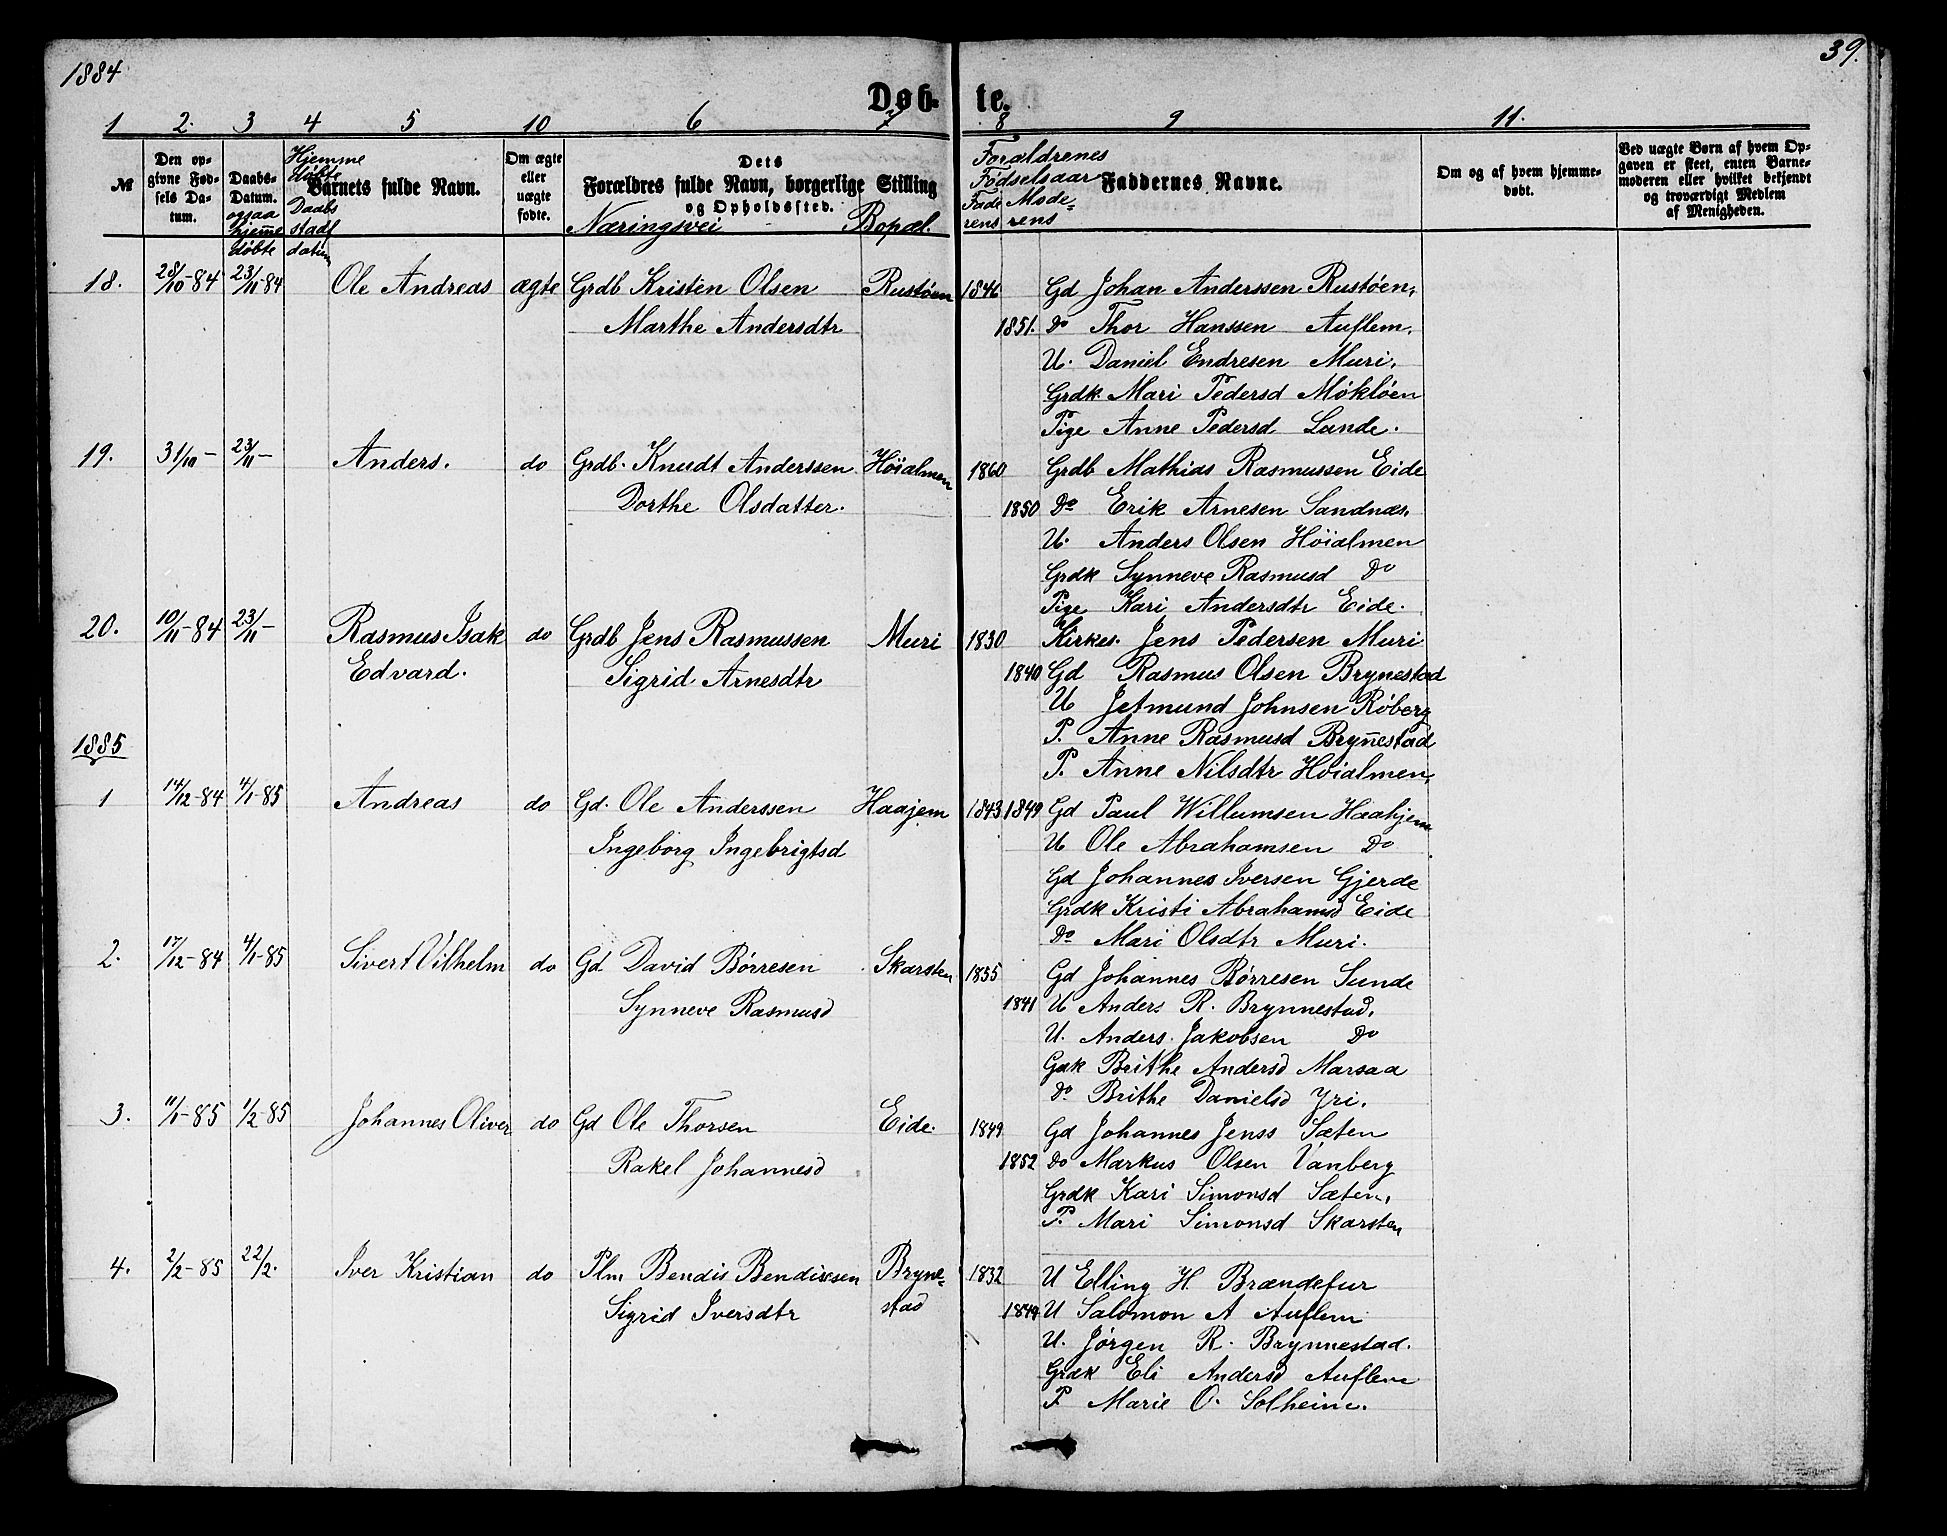 1884
39.
Døb-te.
1 2. 3 4 5 10 6 7 8 9 11.
№
Den opgivne Fødsels Datum.
Daabs-Datum. ogsaa hjemme døbte
Hjemme døbte Daabs stadf datum
Barnets fulde Navn.
Om ægte eller uægte fødte.
Dets Forældres fulde Navn, borgerlige Stilling og Opholdssted.
Næringsvei Bopæl.
Forældrenes Fødselsaar Faderens Moderens
Faddernes Navne.
Om og af hvem hjemmedøbt.
Ved uægte Børn af hvem Opgaven er skeet, enten Barnemoderen eller hvilket bekjendt og troværdigt Medlem af Menigheden.
18. 28/10-84 23/11-84 Ole Andreas ægte Grdb Kristen Olsen Rustøen 1846 Gd Johan Anderssen Rustøen,
Marthe Andersdtr 1851. Do Thor Hanssen Auflem.
U. Daniel Endresen Muri.
Grdk. Mari Pedersd Møkløen
Pige Anne Pedersd Lunde.
19. 31/10- 23/11- Anders. do Grdb. Knudt Anderssen Høialmen 1860 Grdb Mathias Rasmussen Eide
Dorthe Olsdatter. 1850 Do Erik Arnesen Sandnæs.
U. Anders Olsen Höialmen
Grdk Synneve Rasmusd Do
Pige Kari Andersdtr Eide.
20. 10/11-84 23/11- Rasmus Isak do Grdb Jens Rasmussen Muri 1830 Kirkes. Jens Pedersen Muri
Edvard. Sigrid Arnesdtr 1840 Gd Rasmus Olsen Brynestad
U Jetmund Johnsen Røberg
P. Anne Rasmusd Bryn̅estad
P. Anne Nilsdtr Høialmen,
1885
1 14/12-84 4/1-85 Andreas do Gd. Ole Anderssen Haajem 1843 1849 Gd Paul Willumsen Haahjem
Ingeborg Ingebrigtsd U Ole Abrahamsen Do
Gd Johannes Iversen Gjerde
Grdk Kristi Abrahamsd Eide
Do Mari Olsdtr Muri.
2. 17/12-84 4/1-85 Sivert Vilhelm do Gd. David Børresen Skarsten 1835 Gd Johannes Børresen Sunde
Synneve Rasmusd 1841 U Anders R. Brynnestad,
U. Anders. Jakobsen Do
Gdk Brithe Andersd Marsaa
Do Brithe Danielsd Yri.
3. 11/1-85 1/2-85 Johannes Oliver do Gd Ole Thorsen Eide. 1849 Gd Johannes Jenss Sæten
Rakel Johannesd 1852 Do Markus Olsen Vanberg
Grdk Kari Simonsd Sæten,
P. Mari Simonsd Skarsten
4. 2/2-85 22/2. Iver Kristian do Plm Bendis Bendixsen Bryne- 1832 U Elling H Brændefur
Sigrid Iversdtr stad 1849 U Salomon A Auflem
U. Jørgen R. Brynnestad.
Grdk Eli Andersd Auflem
P. Marie O. Solheim.